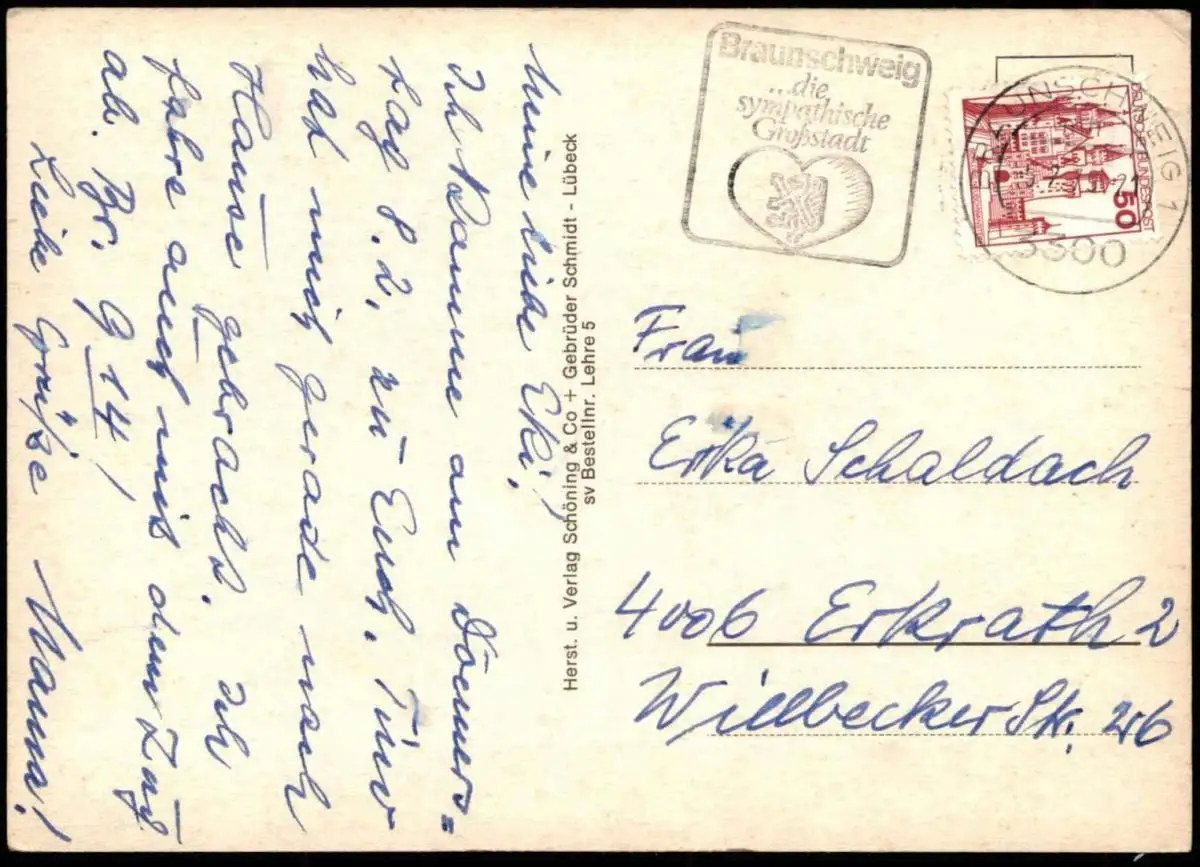 Meine liebe Eki!
Ich komme am Donners=
tag 8.2. zu Euch.
hat mich gerade nach
Hause gebracht. Ich
fahre auch mit dem Zug
ab. Br. 9 14!
Liebe Grüße Mama!
Herst. u. Verlag Schöning & Co + Gebrüder Schmidt - Lübeck
sv Bestellnr. Lehre 5
Braunschweig
...die
sympathische
Großstadt
BRAUNSCHWEIG 1
3300
DEUTSCHE BUNDESPOST
50
Frau
Erika Schaldach
4006 Erkrath 2
Willbecker Str. 26